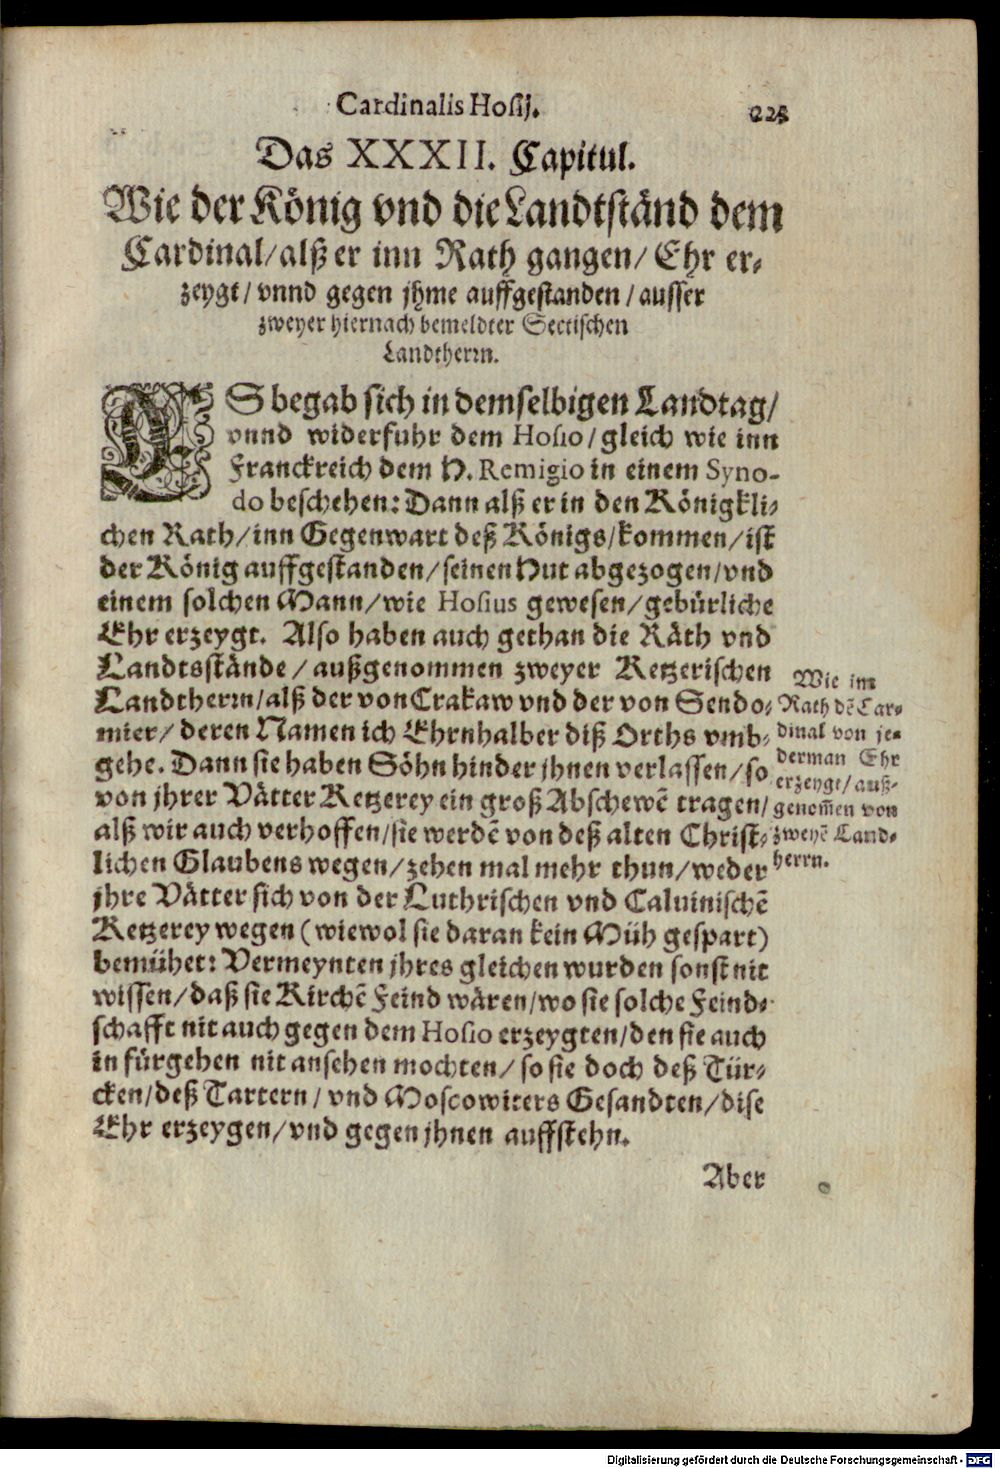 Cardinalis Hosij. 225
Das XXXII. Capitul.
Wie der König vnd die Landtständ dem
Cardinal/ alß er inn Rath gangen/ Ehr er-
zeygt/ vnnd gegen jhme auffgestanden/ ausser
zweyer hiernach bemeldter Sectischen
Landtherrn.
ES begab sich in demselbigen Landtag/
vnnd widerfuhr dem Hosio/ gleich wie inn
Franckreich dem H. Remigio in einem Syno-
do beschehen: Dann alß er in den Königkli-
chen Rath/ inn Gegenwart deß Königs/ kommen/ ist
der König auffgestanden/ seinen Hut abgezogen/ vnd
einem solchen Mann/ wie Hosius gewesen/ gebürliche
Ehr erzeygt. Also haben auch gethan die Räth vnd
Landtsstände/ außgenommen zweyer Ketzerischen
Landtherrn/ alß der von Crakaw vnd der von Sendo-
mier/ deren Namen ich Ehrnhalber diß Orths vmb-
gehe. Dann sie haben Söhn hinder jhnen verlassen/ so
von jhrer Vätter Ketzerey ein groß Abschewē tragen/
alß wir auch verhoffen/ sie werdē von deß alten Christ-
lichen Glaubens wegen/ zehen mal mehr thun/ weder
jhre Vätter sich von der Luthrischen vnd Caluinischē
Ketzerey wegen (wiewol sie daran kein Müh gespart)
bemühet: Vermeynten jhres gleichen wurden sonst nit
wissen/ daß sie Kirchē Feind wären/ wo sie solche Feind-
schafft nit auch gegen dem Hosio erzeygten/ den sie auch
in fürgehen nit ansehen mochten/ so sie doch deß Tür-
cken/ deß Tartern/ vnd Moscowiters Gesandten/ dise
Ehr erzeygen/ vnd gegen jhnen auffstehn.
Wie im
Rath dē Car-
dinal von je-
derman Ehr
erzeygt/ auß-
genom̄en von
zweyē Land-
herrn.
Aber
Digitalisierung gefördert durch die Deutsche Forschungsgemeinschaft - DFG